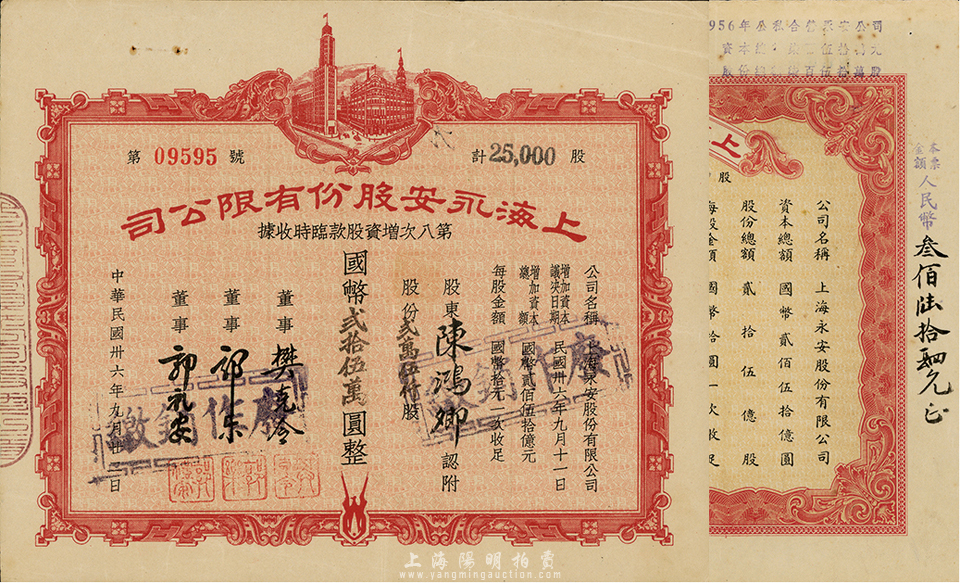 第 09595 號
計 25,000 股
上海永安股份有限公司
第八次增資股款臨時收據
公司名稱 上海永安股份有限公司
增加資本議決日期 民國卅六年九月十一日
增加資本總額 國幣貳佰伍拾億元
每股金額 國幣拾元一次收足
股東 陳鴻卿 認附
股份 弍萬伍仟股
國幣弍拾伍萬圓整
董事 樊克令
董事
董事 郭永安
中華民國卅六年九月廿一日
繳銷作廢
繳銷作廢
956年公私合營永安公司
上
股
公司名稱 上海永安股份有限公司
資本總額 國幣貳佰伍拾億圓
股份總額 貳拾伍億股
每股金額 國幣拾圓一次收足
本票金額 人民幣 叁佰陸拾肆元正
上海陽明拍賣
www.yangmingauction.com